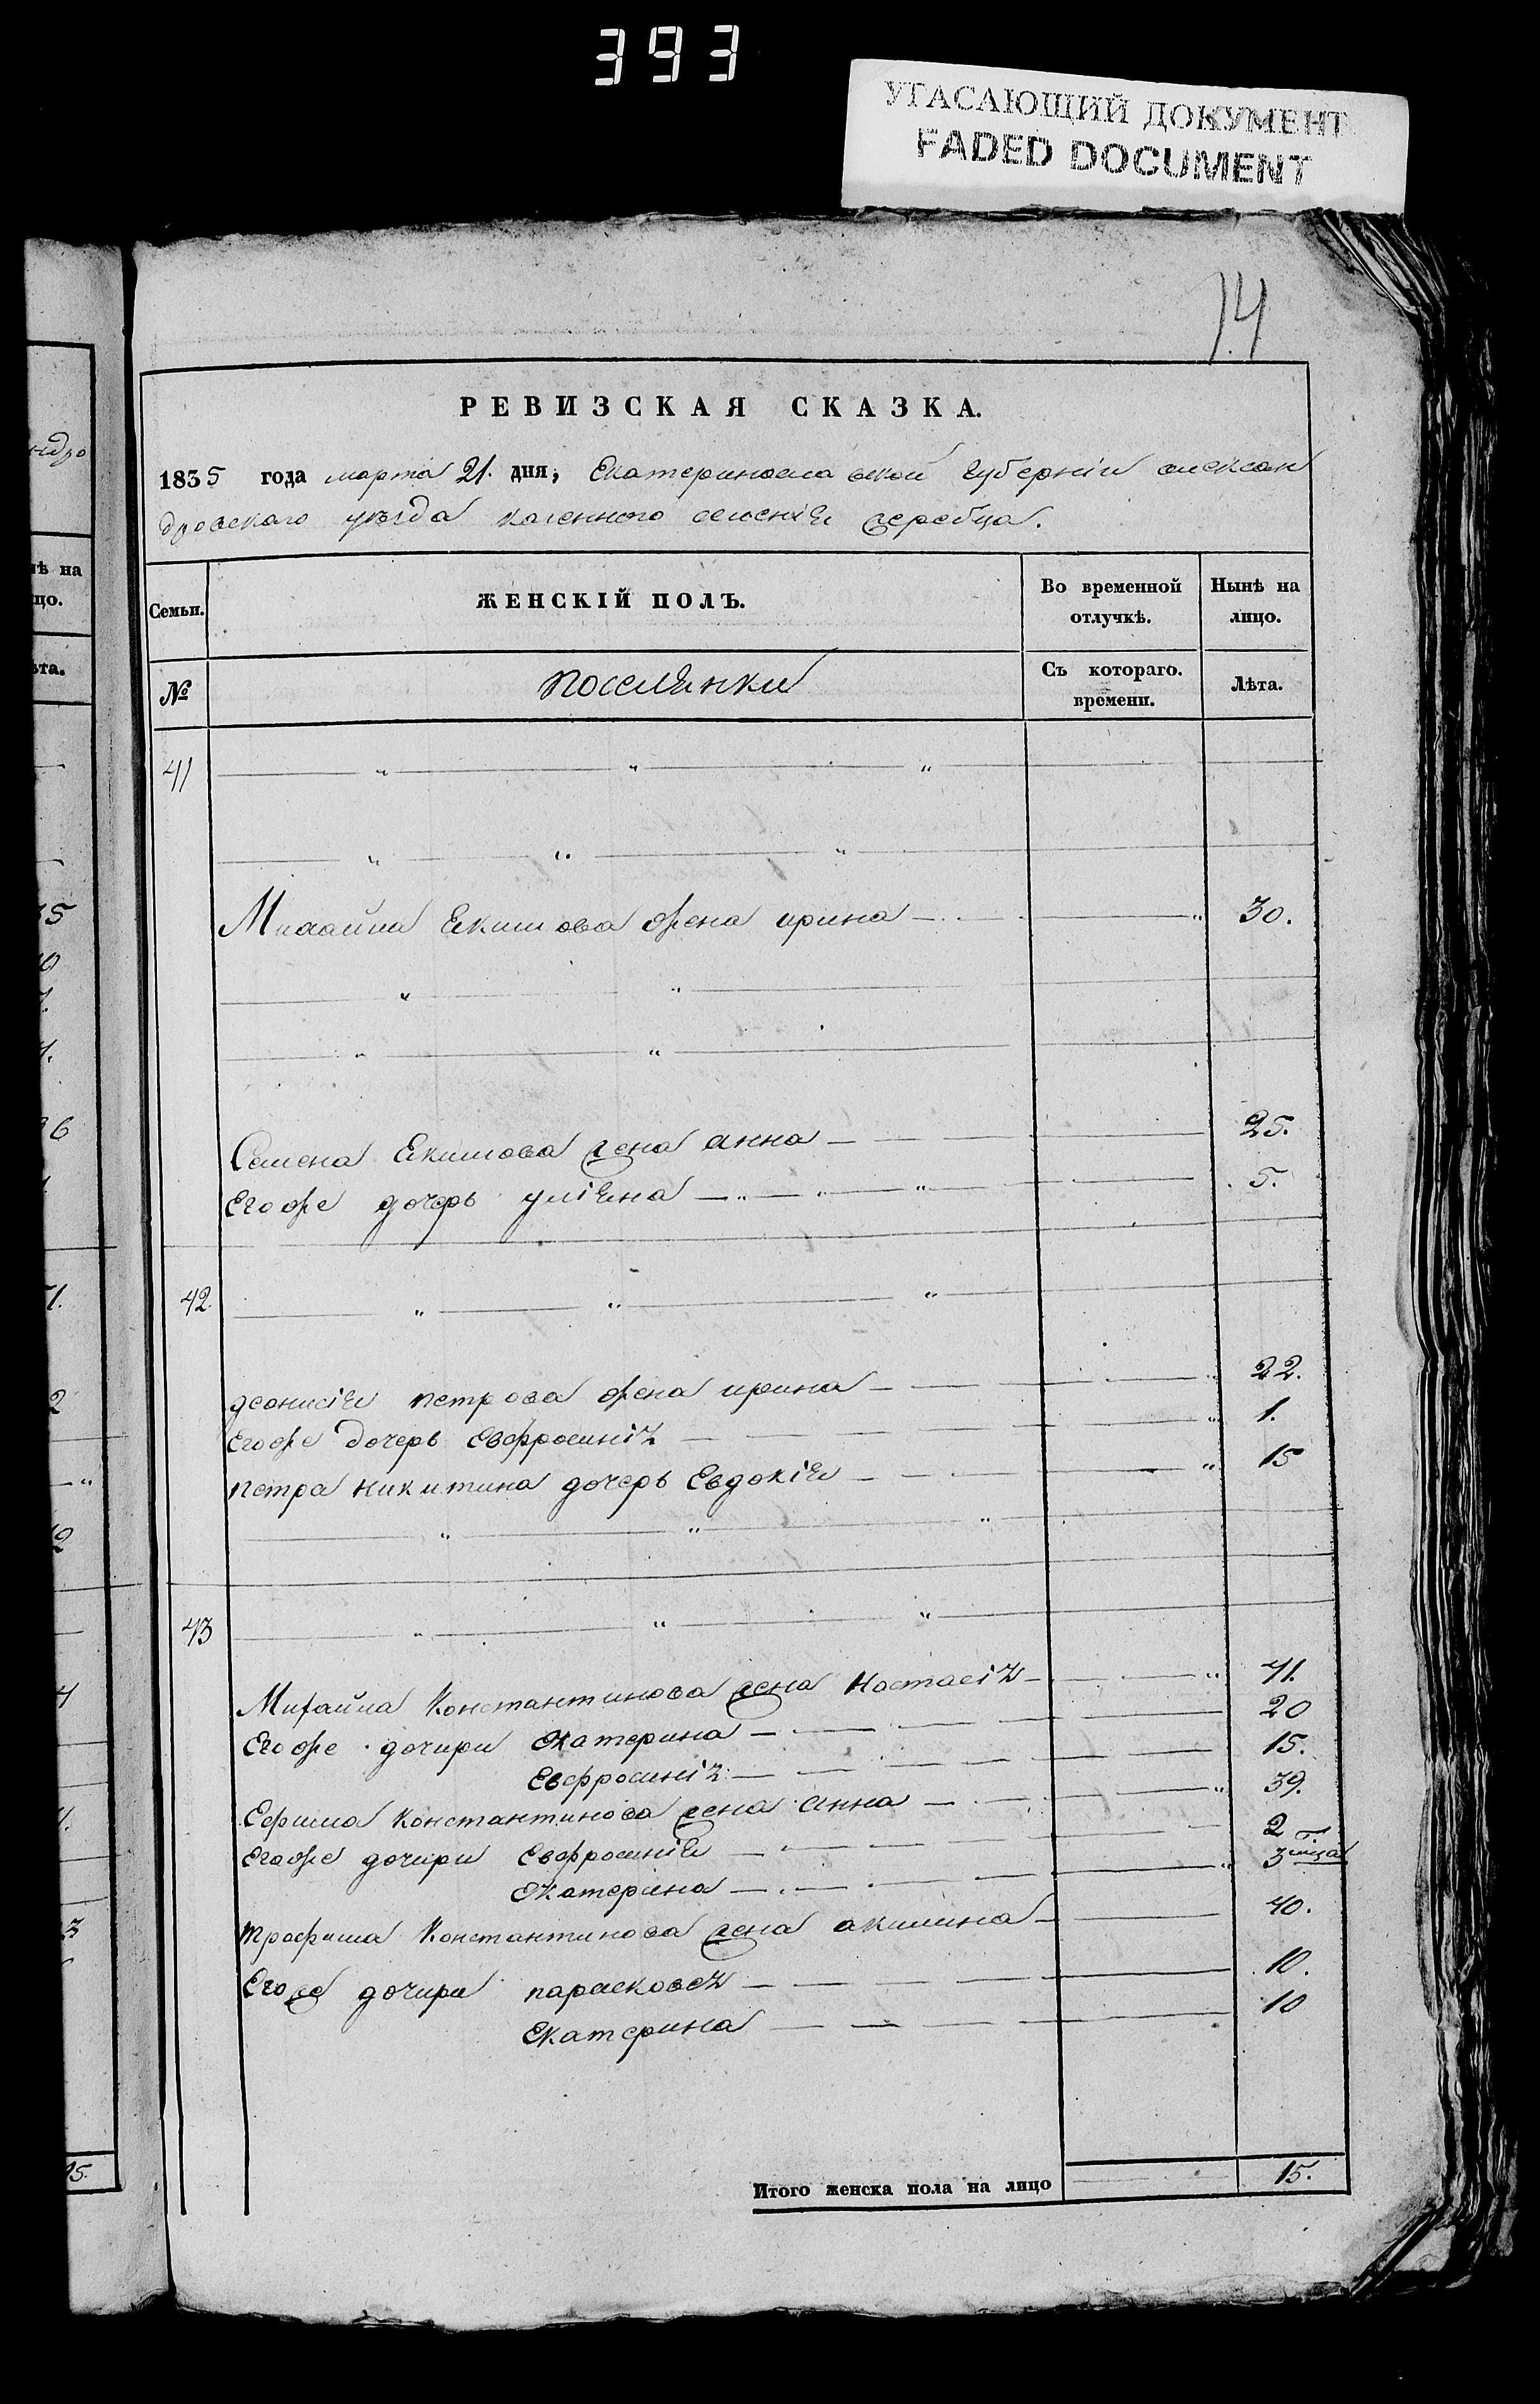 393
УГАСАЮЩИЙ ДОКУМЕНТ
FADED DOCUMENT
14
РЕВИЗСКАЯ СКАЗКА.
1835 года марта 21. дня, Екатеринославской губерніи алексан
дровскаго уезда казенного селенія жеребца.
Семьи.
ЖЕНСКІЙ ПОЛЪ.
Во временной отлучкѣ.
Нынѣ на лицо.
№
поселянки
Съ котораго. времени.
Лѣта.
41
Михайла Екимова жена ирина 30.
Семена Екимова жена анна 25.
Егоже дочерь улияна 5.
42
деонисия петрова жена ирина 22.
Егоже дочерь Евфросинія 1.
петра никитина дочерь Евдокия 15
43
Михайла Константинова жена Настасія 41.
Егоже дочири Екатерина 20
Евфросинія 15.
Ефима Константинова жена анна 39.
Егоже дочири Евфросиния 2
Екатерина 3 мца
трофима Константинова жена акилина 40.
Егоже дочири парасковея 10.
Екатерина 10
Итого женска пола на лицо 15.